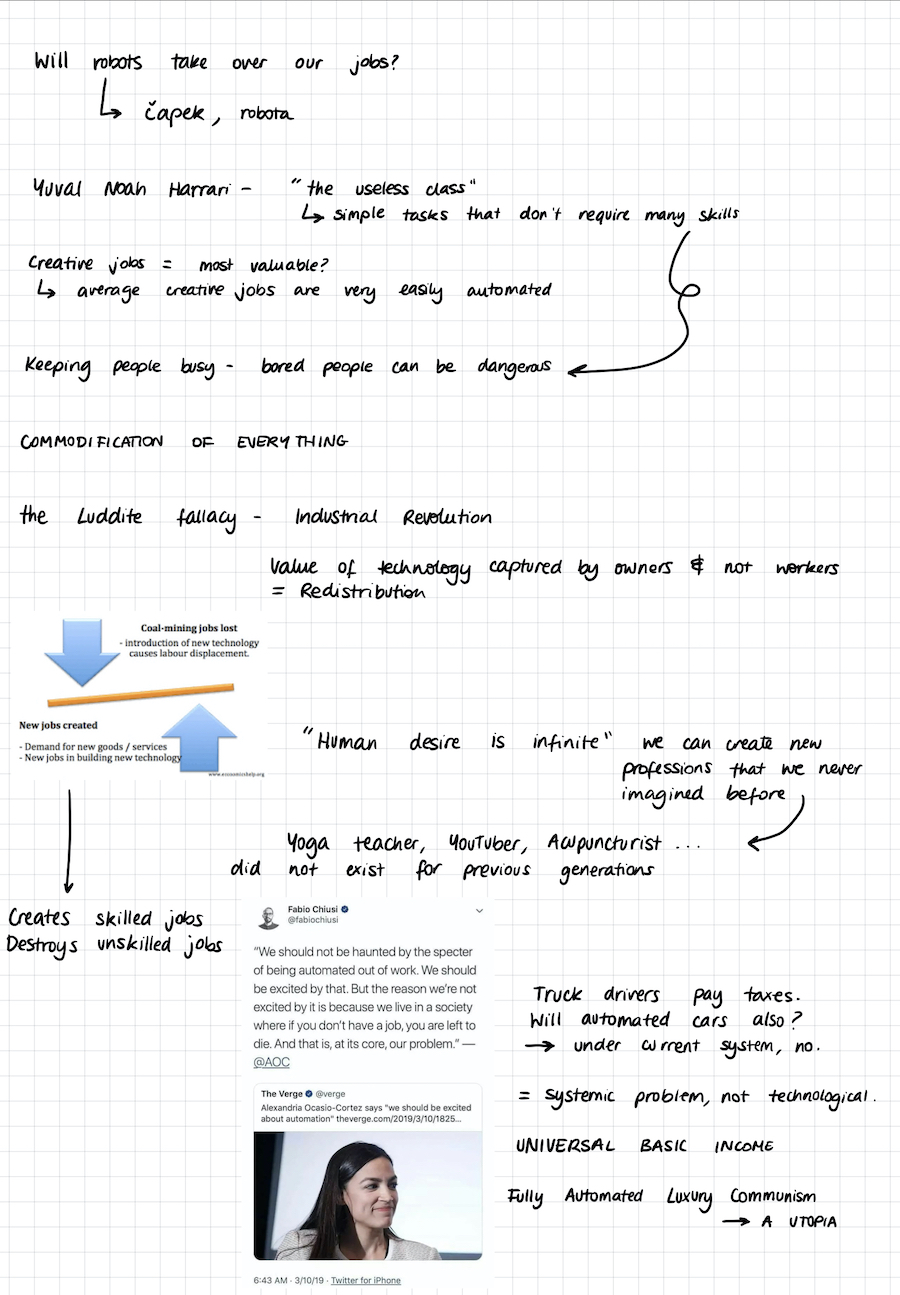 Will robots take over our jobs?
↳ čapek, robota
Yuval Noah Harrari - "the useless class"
↳ simple tasks that don't require many skills
Creative jobs = most valuable?
↳ average creative jobs are very easily automated
Keeping people busy - bored people can be dangerous
COMMODIFICATION OF EVERYTHING
the Luddite fallacy - Industrial Revolution
Value of technology captured by owners & not workers
= Redistribution
Coal-mining jobs lost
- introduction of new technology
causes labour displacement.
New jobs created
- Demand for new goods / services
- New jobs in building new technology
www.economicshelp.org
"Human desire is infinite" we can create new
professions that we never
imagined before
Yoga teacher, YouTuber, Acupuncturist ...
did not exist for previous generations
Creates skilled jobs
Destroys unskilled jobs
Fabio Chiusi
@fabiochiusi
"We should not be haunted by the specter
of being automated out of work. We should
be excited by that. But the reason we're not
excited by it is because we live in a society
where if you don't have a job, you are left to
die. And that is, at its core, our problem." —
@AOC
The Verge @verge
Alexandria Ocasio-Cortez says "we should be excited
about automation" theverge.com/2019/3/10/1825...
6:43 AM · 3/10/19 · Twitter for iPhone
Truck drivers pay taxes.
Will automated cars also?
→ under current system, no.
= systemic problem, not technological.
UNIVERSAL BASIC INCOME
Fully Automated Luxury Communism
→ A UTOPIA